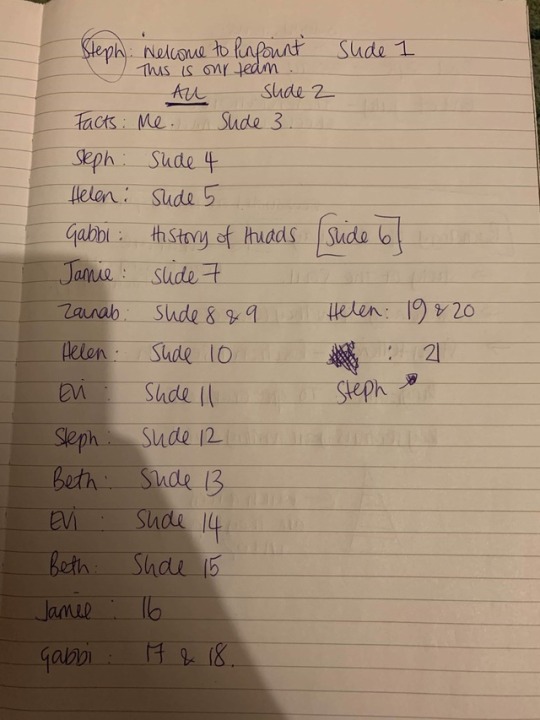 Steph: 'Welcome to Pinpoint' Slide 1
This is our team.
All Slide 2
Facts: Me. Slide 3.
Steph: Slide 4
Helen: Slide 5
Gabbi: History of Hudds [Slide 6]
Jamie: Slide 7
Zainab: Slide 8 & 9
Helen: Slide 10
Evi: Slide 11
Steph: Slide 12
Beth: Slide 13
Evi: Slide 14
Beth: Slide 15
Jamie: 16
Gabbi: 17 & 18.
Helen: 19 & 20
: 21
Steph